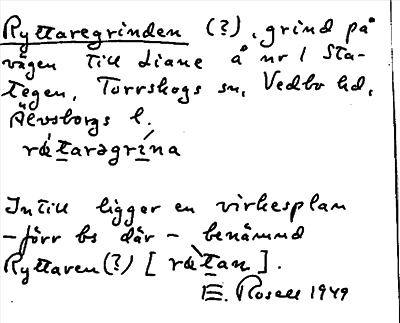 Ryttaregrinden (?), grind på
vägen till Liane å nr 1 Sta-
tegen, Torrskogs sn, Vedbo hd,
Älvsborgs l.
rǽtarəgrína
Intill ligger en virkesplan
- förr bs där - benämnd
Ryttaren (?) [rætan].
E. Rosell 1949